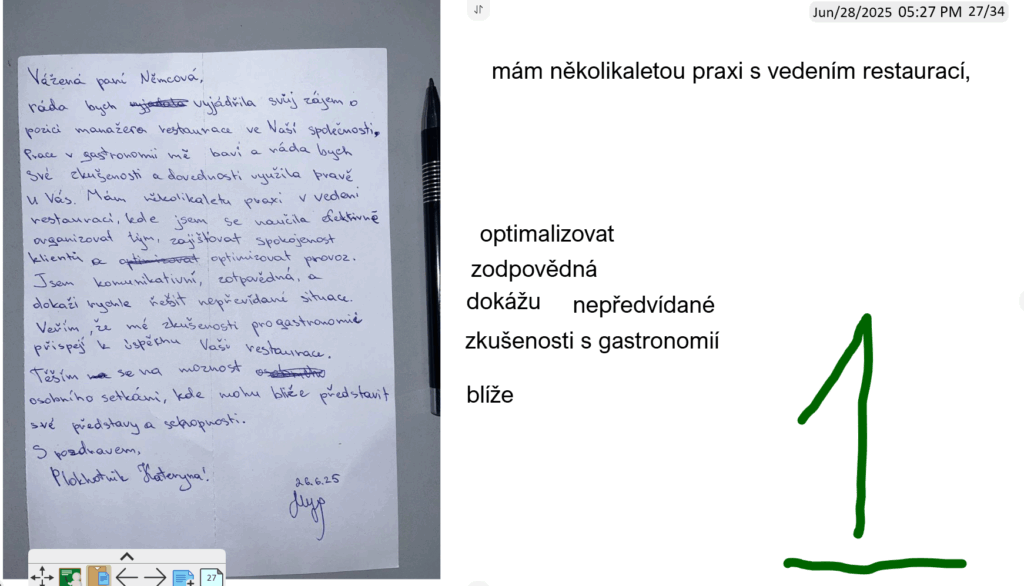 Vážená paní Němcová,
ráda bych vyjádřila svůj zájem o
pozici manažera restaurace ve Vaší společnosti.
Prace v gastronomii mě baví a ráda bych
své zkušenosti a dovednosti využila pravě
u Vás. Mám několikaletu praxi v vedení
restauraci, kde jsem se naučila efektivně
organizovat tým, zajišťovat spokojenost
klientů a optimizovat provoz.
Jsem komunikativní, zotpovědná, a
dokaži rychle řešit nepřevídané situace.
Veřím, že mé zkušenosti pro gastronomie
přispějí k úspěchu Vaší restaurace.
Těším se na možnost
osobního setkání, kde mohu bliže představit
své představy a schopnosti.
S pozdravem,
Plokhotnik Kateryna!
26.6.25
27
Jun/28/2025 05:27 PM 27/34
mám několikaletou praxi s vedením restaurací,
optimalizovat
zodpovědná
dokážu nepředvídané
zkušenosti s gastronomií
blíže
1